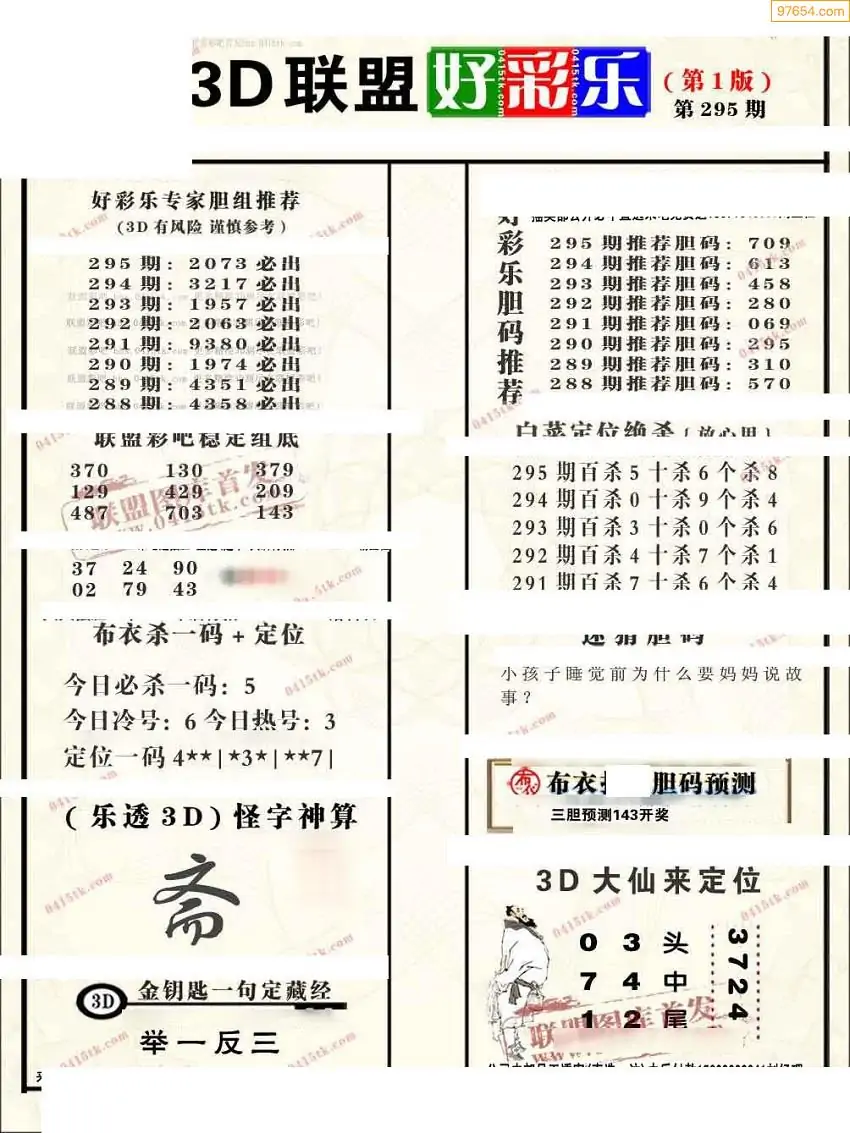 97654.com
3D联盟好彩乐(第1版)
第295期
好彩乐专家胆组推荐
(3D有风险 谨慎参考)
295期: 2073必出
294期: 3217必出
293期: 1957必出
292期: 2063必出
291期: 9380必出
290期: 1974必出
289期: 4351必出
288期: 4358必出
联盟彩吧稳定组底
370 130 379
129 429 209
487 703 143
联盟图库首发
www.0415tk.com
37 24 90
02 79 43
布衣杀一码+定位
今日必杀一码: 5
今日冷号: 6 今日热号: 3
定位一码4★★|★3★|★★7|
(乐透3D)怪字神算
斋
3D 金钥匙一句定藏经
举一反三
好彩乐胆码推荐
295期推荐胆码: 709
294期推荐胆码: 613
293期推荐胆码: 458
292期推荐胆码: 280
291期推荐胆码: 069
290期推荐胆码: 295
289期推荐胆码: 310
288期推荐胆码: 570
白菜定位绝杀(放心用)
295期百杀5十杀6个杀8
294期百杀0十杀9个杀4
293期百杀3十杀0个杀6
292期百杀4十杀7个杀1
291期百杀7十杀6个杀4
谜猜胆码
小孩子睡觉前为什么要妈妈说故
事?
布衣
胆码预测
三胆预测143开奖
3D大仙来定位
0 3 头
7 4 中
1 2 尾
3724
联盟图库首发
0415tk.com